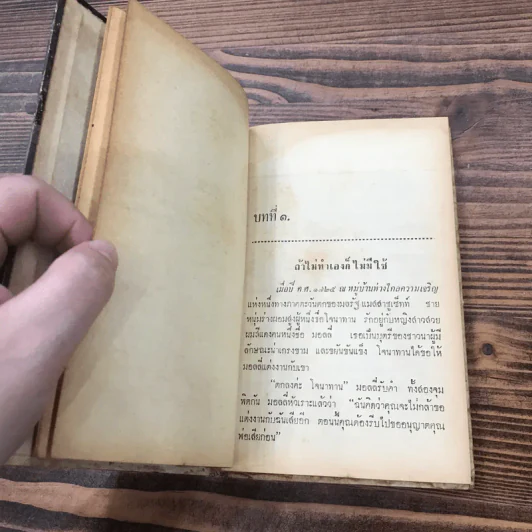 บทที่ ๑.
ถ้าไม่ทำเองก็ไม่มีใช้
เมื่อปี ค.ศ. ๑๘๒๕ ณ หมู่บ้านห่างไกลความเจริญ
แห่งหนึ่งทางภาคตะวันตกของมลรัฐแมสสาชูเซ็ทท์ ชาย
หนุ่มร่างผอมสูงผู้หนึ่งชื่อโจนาทาน รักอยู่กับหญิงสาวสวย
ผมสีแดงคนหนึ่งชื่อ มอลลี่ เธอเป็นบุตรีของชาวนาผู้มี
ลักษณะน่าเกรงขาม และขยันขันแข็ง โจนาทานได้ขอให้
มอลลี่แต่งงานกับเขา
"ตกลงค่ะ โจนาทาน" มอลลี่รับคำ ทั้งสองจุม
พิตกัน มอลลี่หัวเราะแล้วว่า "ฉันคิดว่าคุณจะไม่กล้าขอ
แต่งงานกับฉันเสียอีก ตอนนี้คุณต้องรีบไปขออนุญาตคุณ
พ่อเสียก่อน"